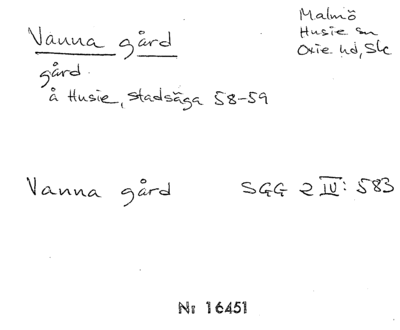 Vanna gård
Malmö
Husie sn
Oxie hd, Sk
gård
å Husie, stadsäga 58-59
Vanna gård SGG 2 IV: 583
Nr 16451